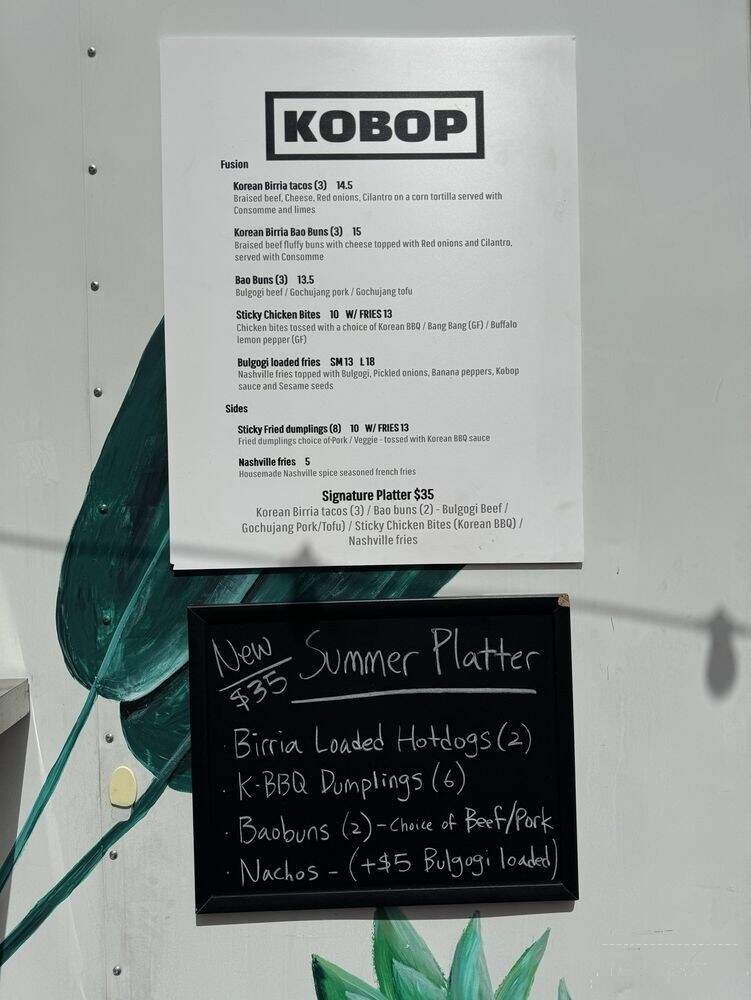 KOBOP
Fusion
Korean Birria tacos (3) 14.5
Braised beef, Cheese, Red onions, Cilantro on a corn tortilla served with
Consomme and limes
Korean Birria Bao Buns (3) 15
Braised beef fluffy buns with cheese topped with Red onions and Cilantro,
served with Consomme
Bao Buns (3) 13.5
Bulgogi beef / Gochujang pork / Gochujang tofu
Sticky Chicken Bites 10 W/ FRIES 13
Chicken bites tossed with a choice of Korean BBQ / Bang Bang (GF) / Buffalo
lemon pepper (GF)
Bulgogi loaded fries SM 13 L 18
Nashville fries topped with Bulgogi, Pickled onions, Banana peppers, Kobop
sauce and Sesame seeds
Sides
Sticky Fried dumplings (8) 10 W/ FRIES 13
Fried dumplings choice of Pork / Veggie - tossed with Korean BBQ sauce
Nashville fries 5
Housemade Nashville spice seasoned french fries
Signature Platter $35
Korean Birria tacos (3) / Bao buns (2) - Bulgogi Beef /
Gochujang Pork/Tofu) / Sticky Chicken Bites (Korean BBQ) /
Nashville fries
New Summer Platter
$35
· Birria Loaded Hotdogs (2)
· K-BBQ Dumplings (6)
· Baobuns (2) - Choice of Beef/Pork
· Nachos - (+$5 Bulgogi loaded)